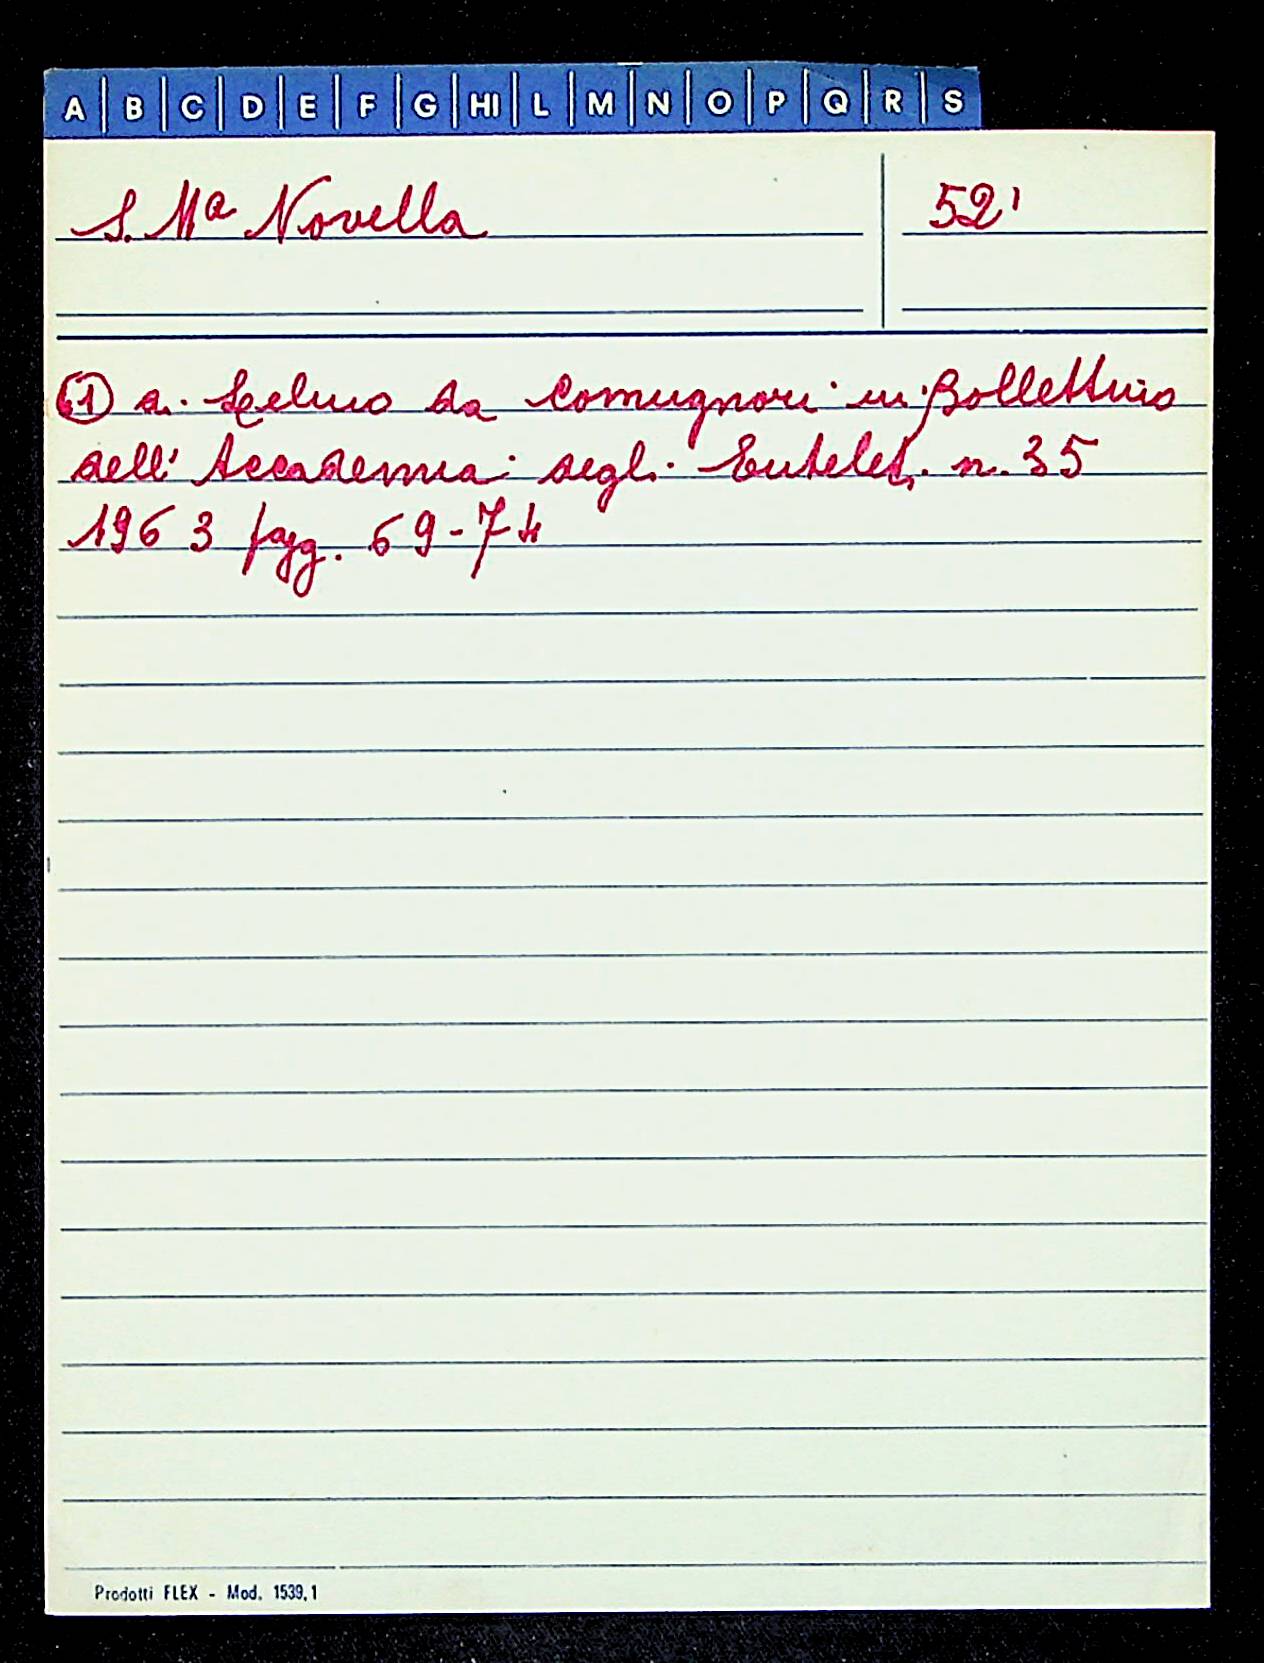 A B C D E F G HI L M N O P Q R S
S. Mª Novella 52'
(1) a. da Comugnori in Bollettino
dell' Accademia degli Eutelet. n. 35
1963 pagg. 69-74
Prodotti FLEX - Mod. 1539,1